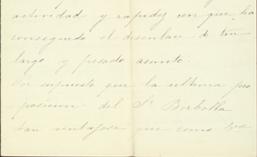 actividad y rapidez con que ha
conseguido el desenlace de tan
largo y pesado asunto.
Por supuesto que la ultima pro
posicion del Sr Borbolla
tan ventajosa como